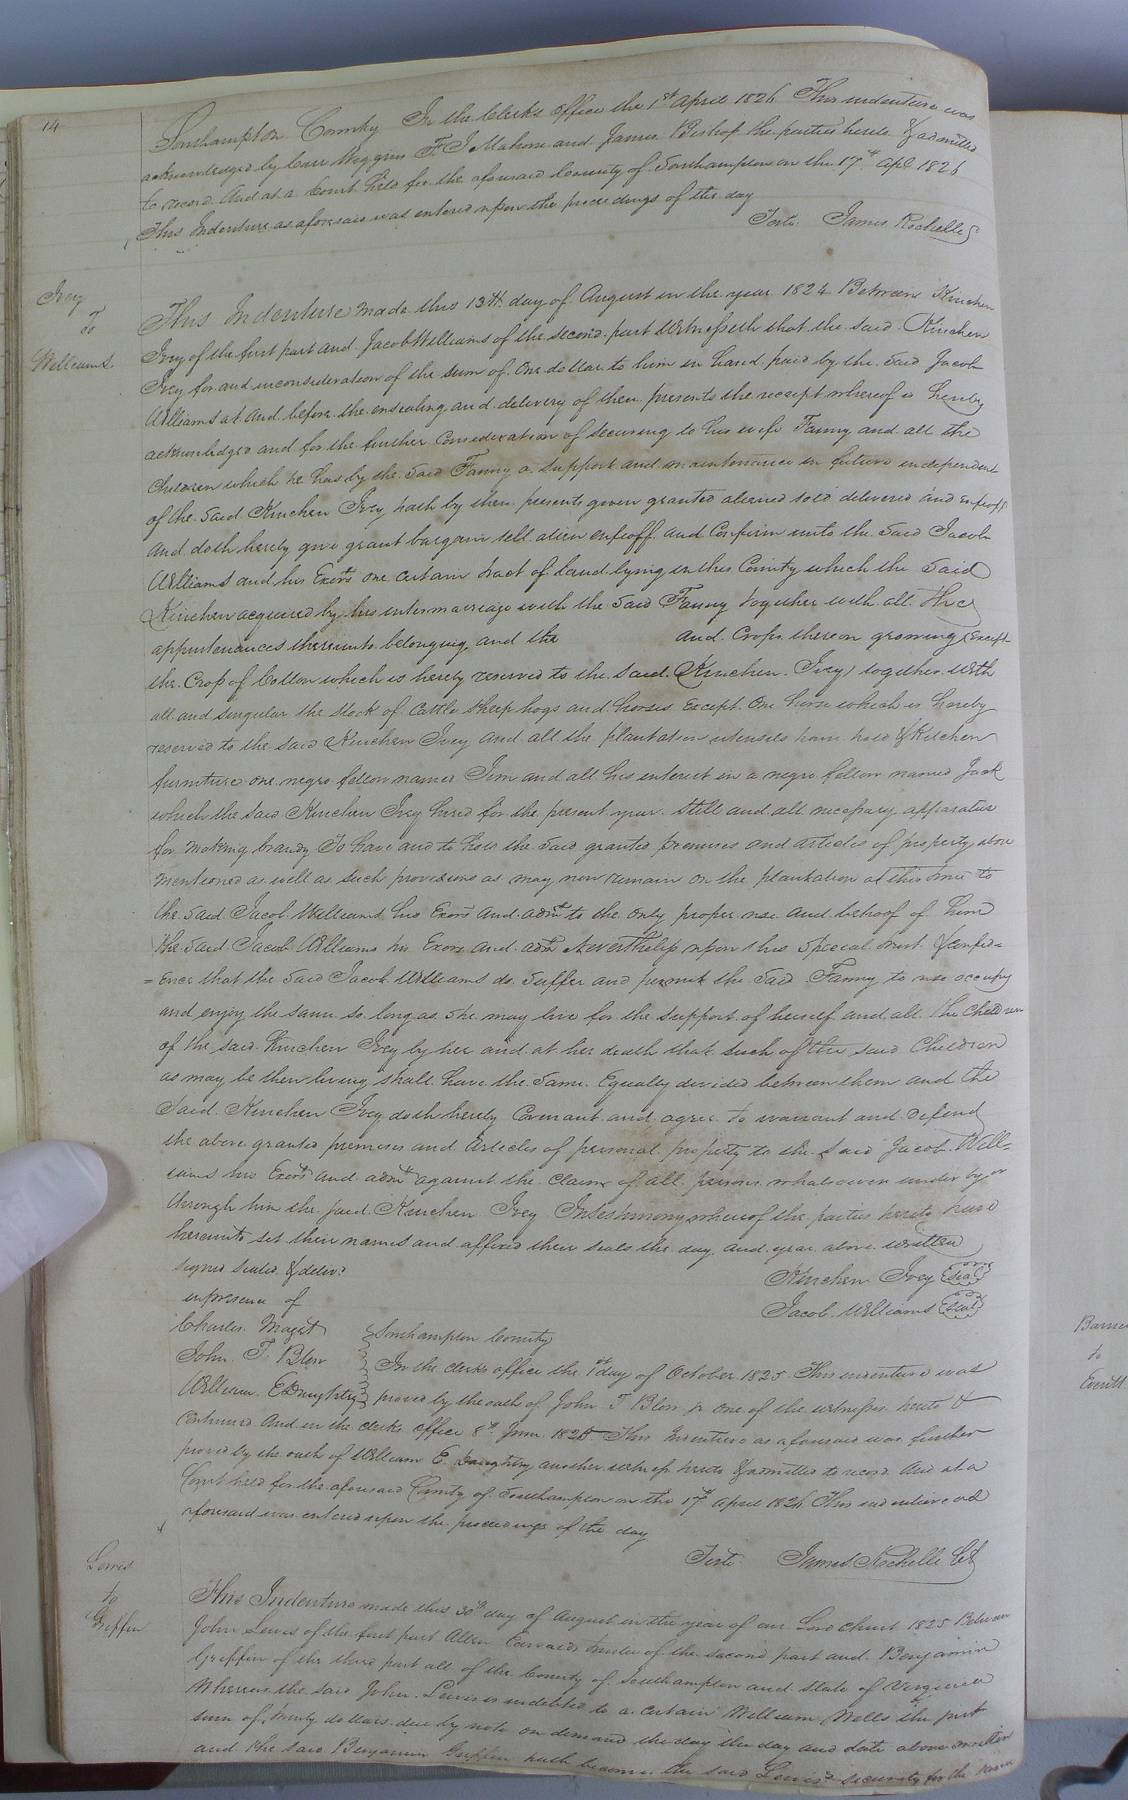 14
Southampton County In the Clerks office the 1st April 1826 This indenture was
acknowledged by Carr Wiggins F. J. Mahone and James Bishop the parties hereto & admitted
to record And at a Court held for the aforesaid County of Southampton on the 17th Apl 1826
This Indenture as aforesaid was entered upon the proceedings of the day
Teste James Rochelle
Ivey
To
Williams
This Indenture made this 13th day of August in the year 1824 Between Kinchen
Ivey of the first part and Jacob Williams of the second part Witnesseth that the said Kinchen
Ivey for and in consideration of the sum of One dollar to him in hand paid by the said Jacob
Williams at And before the ensealing and delivery of these presents the receipt whereof is hereby
acknowledged and for the further Consideration of securing to his wife Fanny and all the
Children which he has by the said Fanny a support and maintenance in future independent
of the said Kinchen Ivey hath by these presents given granted aliened sold delivered and
and doth hereby give grant bargain sell alien enfeoff and Confirm unto the said Jacob
Williams and his Exors one certain tract of land lying in this County which the said
Kinchen acquired by his intermarriage with the said Fanny together with all the
appurtenances thereunto belonging and the and Crops thereon growing (except
the Crop of Cotton which is hereby reserved to the said Kinchen Ivey) together with
all and singular the stock of Cattle sheep hogs and horses except One horse which is hereby
reserved to the said Kinchen Ivey and all the plantation utensils hold & Kitchen
furniture one negro fellow named Jim and all his interest in a negro fellow named Jack
which the said Kinchen Ivey hired for the present year. Still and all necessary apparatus
for making brandy To have and to hold the said granted premises and articles of property above
mentioned as well as such provisions as may now remain on the plantation at this time to
the said Jacob Williams his Exors and admr to the only proper use and behoof of him
the said Jacob Williams his Exors and admr Nevertheless upon this special trust & confid=
=ence that the said Jacob Williams do suffer and permit the said Fanny to use occupy
and enjoy the same so long as she may live for the support of herself and all the children
of the said Kinchen Ivey by her and at her death that such of the said Children
as may be then living shall have the same Equally divided between them and the
said Kinchen Ivey doth hereby Covenant and agree to warrant and defend
the above granted premises and Articles of personal property to the said Jacob Will=
iams his Exors and admr against the Claims of all persons whatsoever under by or
through him the said Kinchen Ivey In testimony whereof the parties hereto have
hereunto set their names and affixed their seals the day and year above written
signed sealed & delivd
in presence of
Kinchen Ivey (seal)
Jacob Williams (seal)
Charles Maget
John T. Blow
William E Daughtry
Southampton County
In the clerks office the 1st day of October 1825 This indenture was
proved by the oath of John T Blow jr one of the witnesses hereto &
Continued And in the clerks office 8th June This Indenture as aforesaid was further
proved by the oath of William E. Daughtry another witness hereto & admitted to record And at a
Court held for the aforesaid County of Southampton on the 17th April 1826 This indenture as
aforesaid was entered upon the proceedings of the day
Teste James Rochelle Clk
Lewis
to
Griffin
This Indenture made this 30th day of August in the year of our Lord Christ 1825 Between
John Lewis of the first part Allen Edwards trustee of the second part and Benjamin
Griffin of the third part all of the County of Southampton and State of Virginia
Whereas the said John Lewis is indebted to a certain William Wells the just
sum of twenty dollars due by note on demand the day the day and date above written
and the said Benjamin Griffin hath become the said Lewis's security for the same
Barnes
to
Everitt